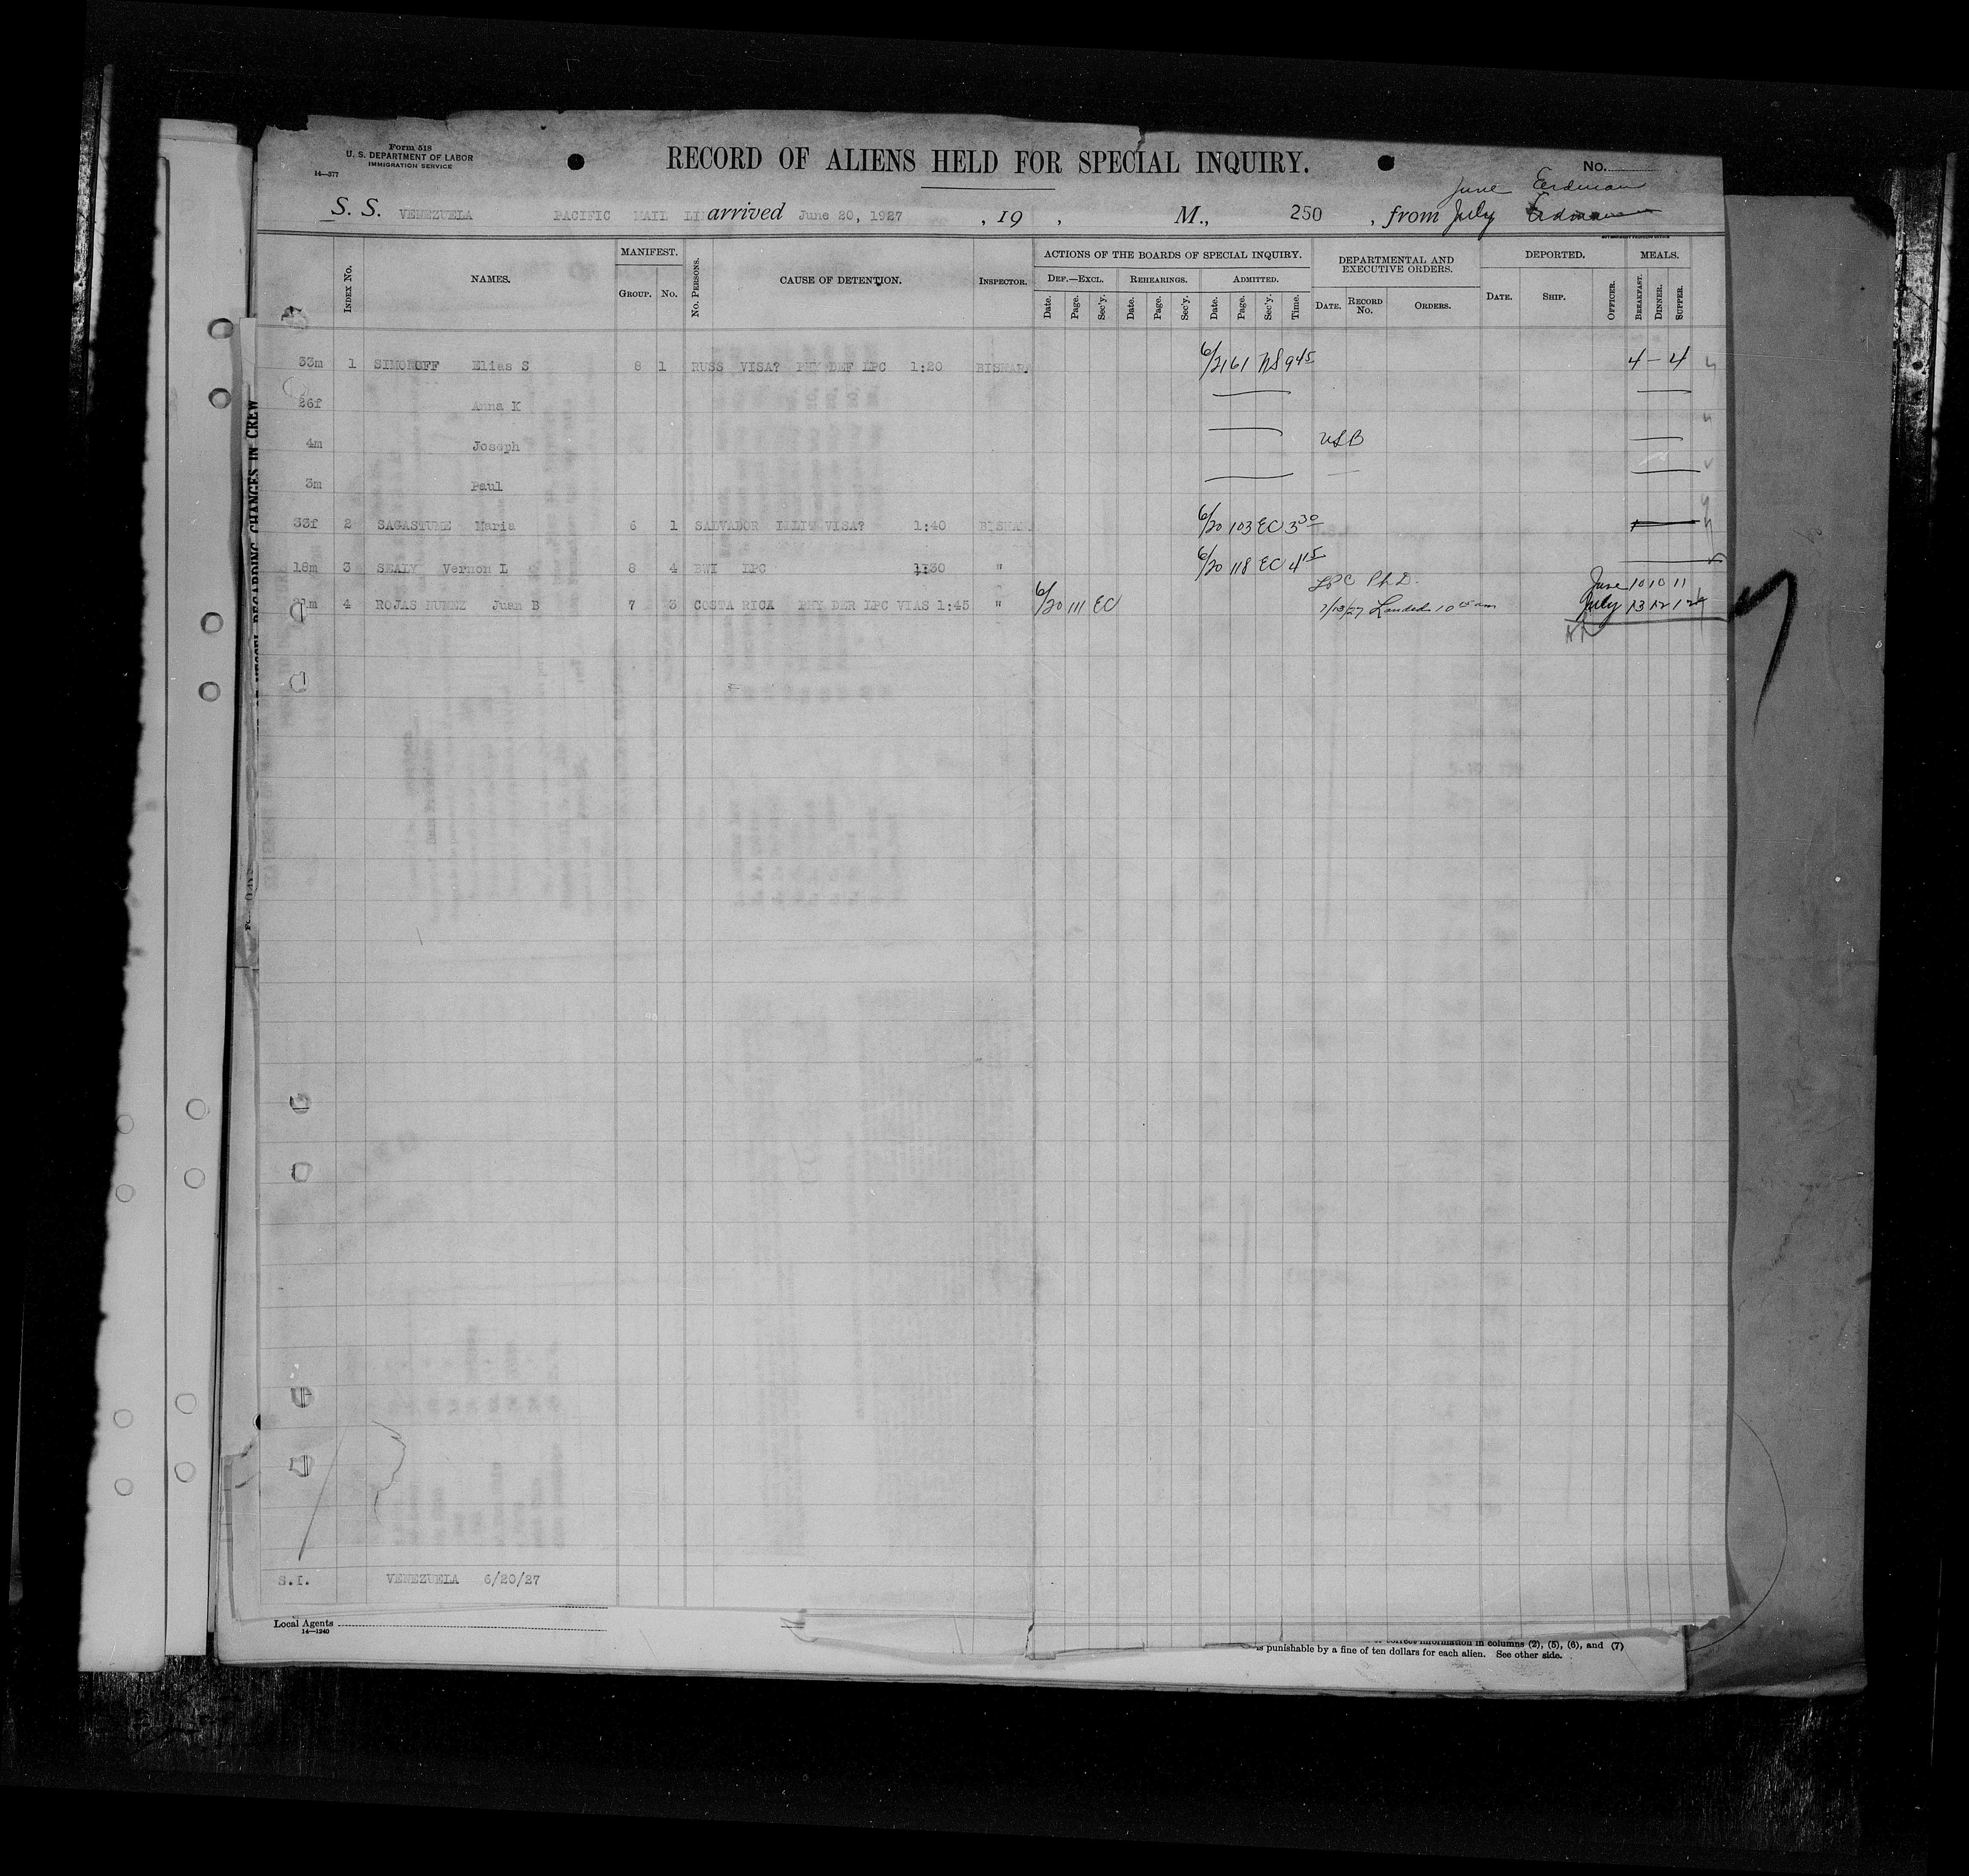 Form 518
U. S. DEPARTMENT OF LABOR
IMMIGRATION SERVICE
14—377
RECORD OF ALIENS HELD FOR SPECIAL INQUIRY.
No.
June Erdman
S. S. VENEZUELA PACIFIC MAIL LINE arrived June 20, 1927 , 19 , M., 250 , from July Erdman
INDEX No. NAMES. MANIFEST. GROUP. No. No. PERSONS. CAUSE OF DETENTION. INSPECTOR. ACTIONS OF THE BOARDS OF SPECIAL INQUIRY. DEPARTMENTAL AND EXECUTIVE ORDERS. DEPORTED. MEALS.
DEF.—EXCL. REHEARINGS. ADMITTED.
Date. Page. Sec'y. Date. Page. Sec'y. Date. Page. Sec'y. Time. DATE. RECORD No. ORDERS. DATE. SHIP. OFFICER. BREAKFAST. DINNER. SUPPER.
33m 1 SIMONOFF Elias S 8 1 RUSS VISA? PHY DEF LPC 1:20 BISHAR. 6/21 61 NS 9 45 4 — 4
26f Anna K
4m Joseph USB
3m Paul
33f 2 SAGASTUME Maria 6 1 SALVADOR ILLIT VISA? 1:40 BISHAR. 6/20 103 EC 3 30
18m 3 SEALY Vernon L 8 4 BWI LPC 1:30 " 6/20 118 EC 4 15
LPC Ph D. June 10 10 11
21m 4 ROJAS NUNEZ Juan B 7 3 COSTA RICA PHY DER LPC VIAS 1:45 " 6/20 111 EC 7/13/27 Landed 10 am July 13 12 12
S.I. VENEZUELA 6/20/27
Local Agents
14—1240
correct information in columns (2), (5), (6), and (7)
is punishable by a fine of ten dollars for each alien. See other side.
REGARDING CHANGES IN CREW